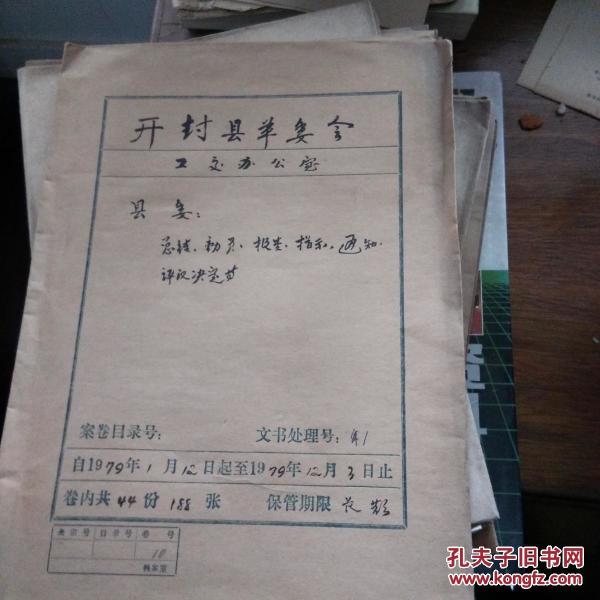 开封县革委会
工交办公室
县委:
总结、初步、报告、指示、通知、
评议决定等
案卷目录号: 文书处理号:
自1979年1月12日起至1979年12月3日止
卷内共44份188张 保管期限 长期
全宗号 目录号 卷号
10
档案室
孔夫子旧书网
www.kongfz.com